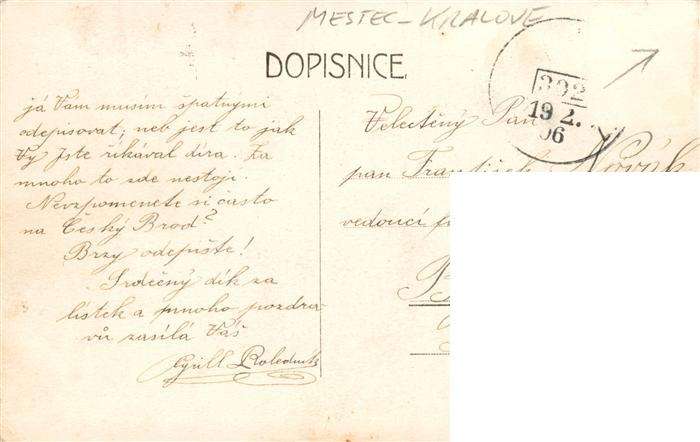 MESTEC-KRALOVE
DOPISNICE
392
19 2.
06
já Vam musím špatnými
odepisovat, neb jest to jak
Vy Jste říkával díra. Za
mnoho to zde nestojí.
Nevzpomenete si často
na Český Brod?
Brzy odepište!
Srdečný dík za
lístek a mnoho pozdra
vů zasílá Váš
Cyrill
Velectěný Pán
pan František Novák
vedoucí